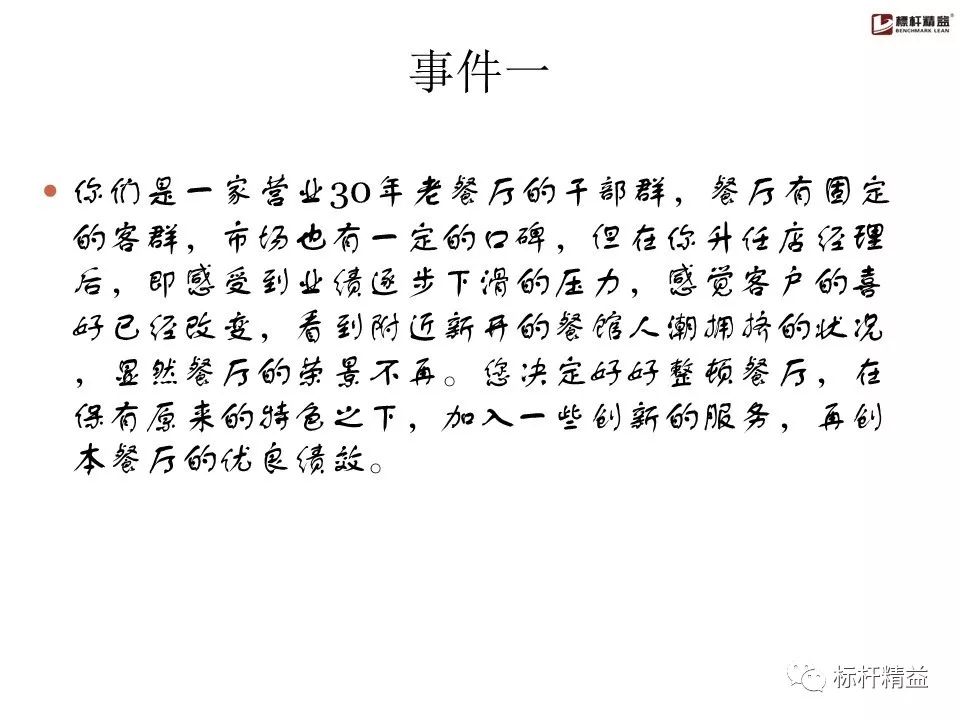 标杆精益®
BENCHMARK LEAN
事件一
• 你们是一家营业30年老餐厅的干部群，餐厅有固定
的客群，市场也有一定的口碑，但在你升任店经理
后，即感受到业绩逐步下滑的压力，感觉客户的喜
好已经改变，看到附近新开的餐馆人潮拥挤的状况
，显然餐厅的荣景不再。您决定好好整顿餐厅，在
保有原来的特色之下，加入一些创新的服务，再创
本餐厅的优良绩效。
标杆精益